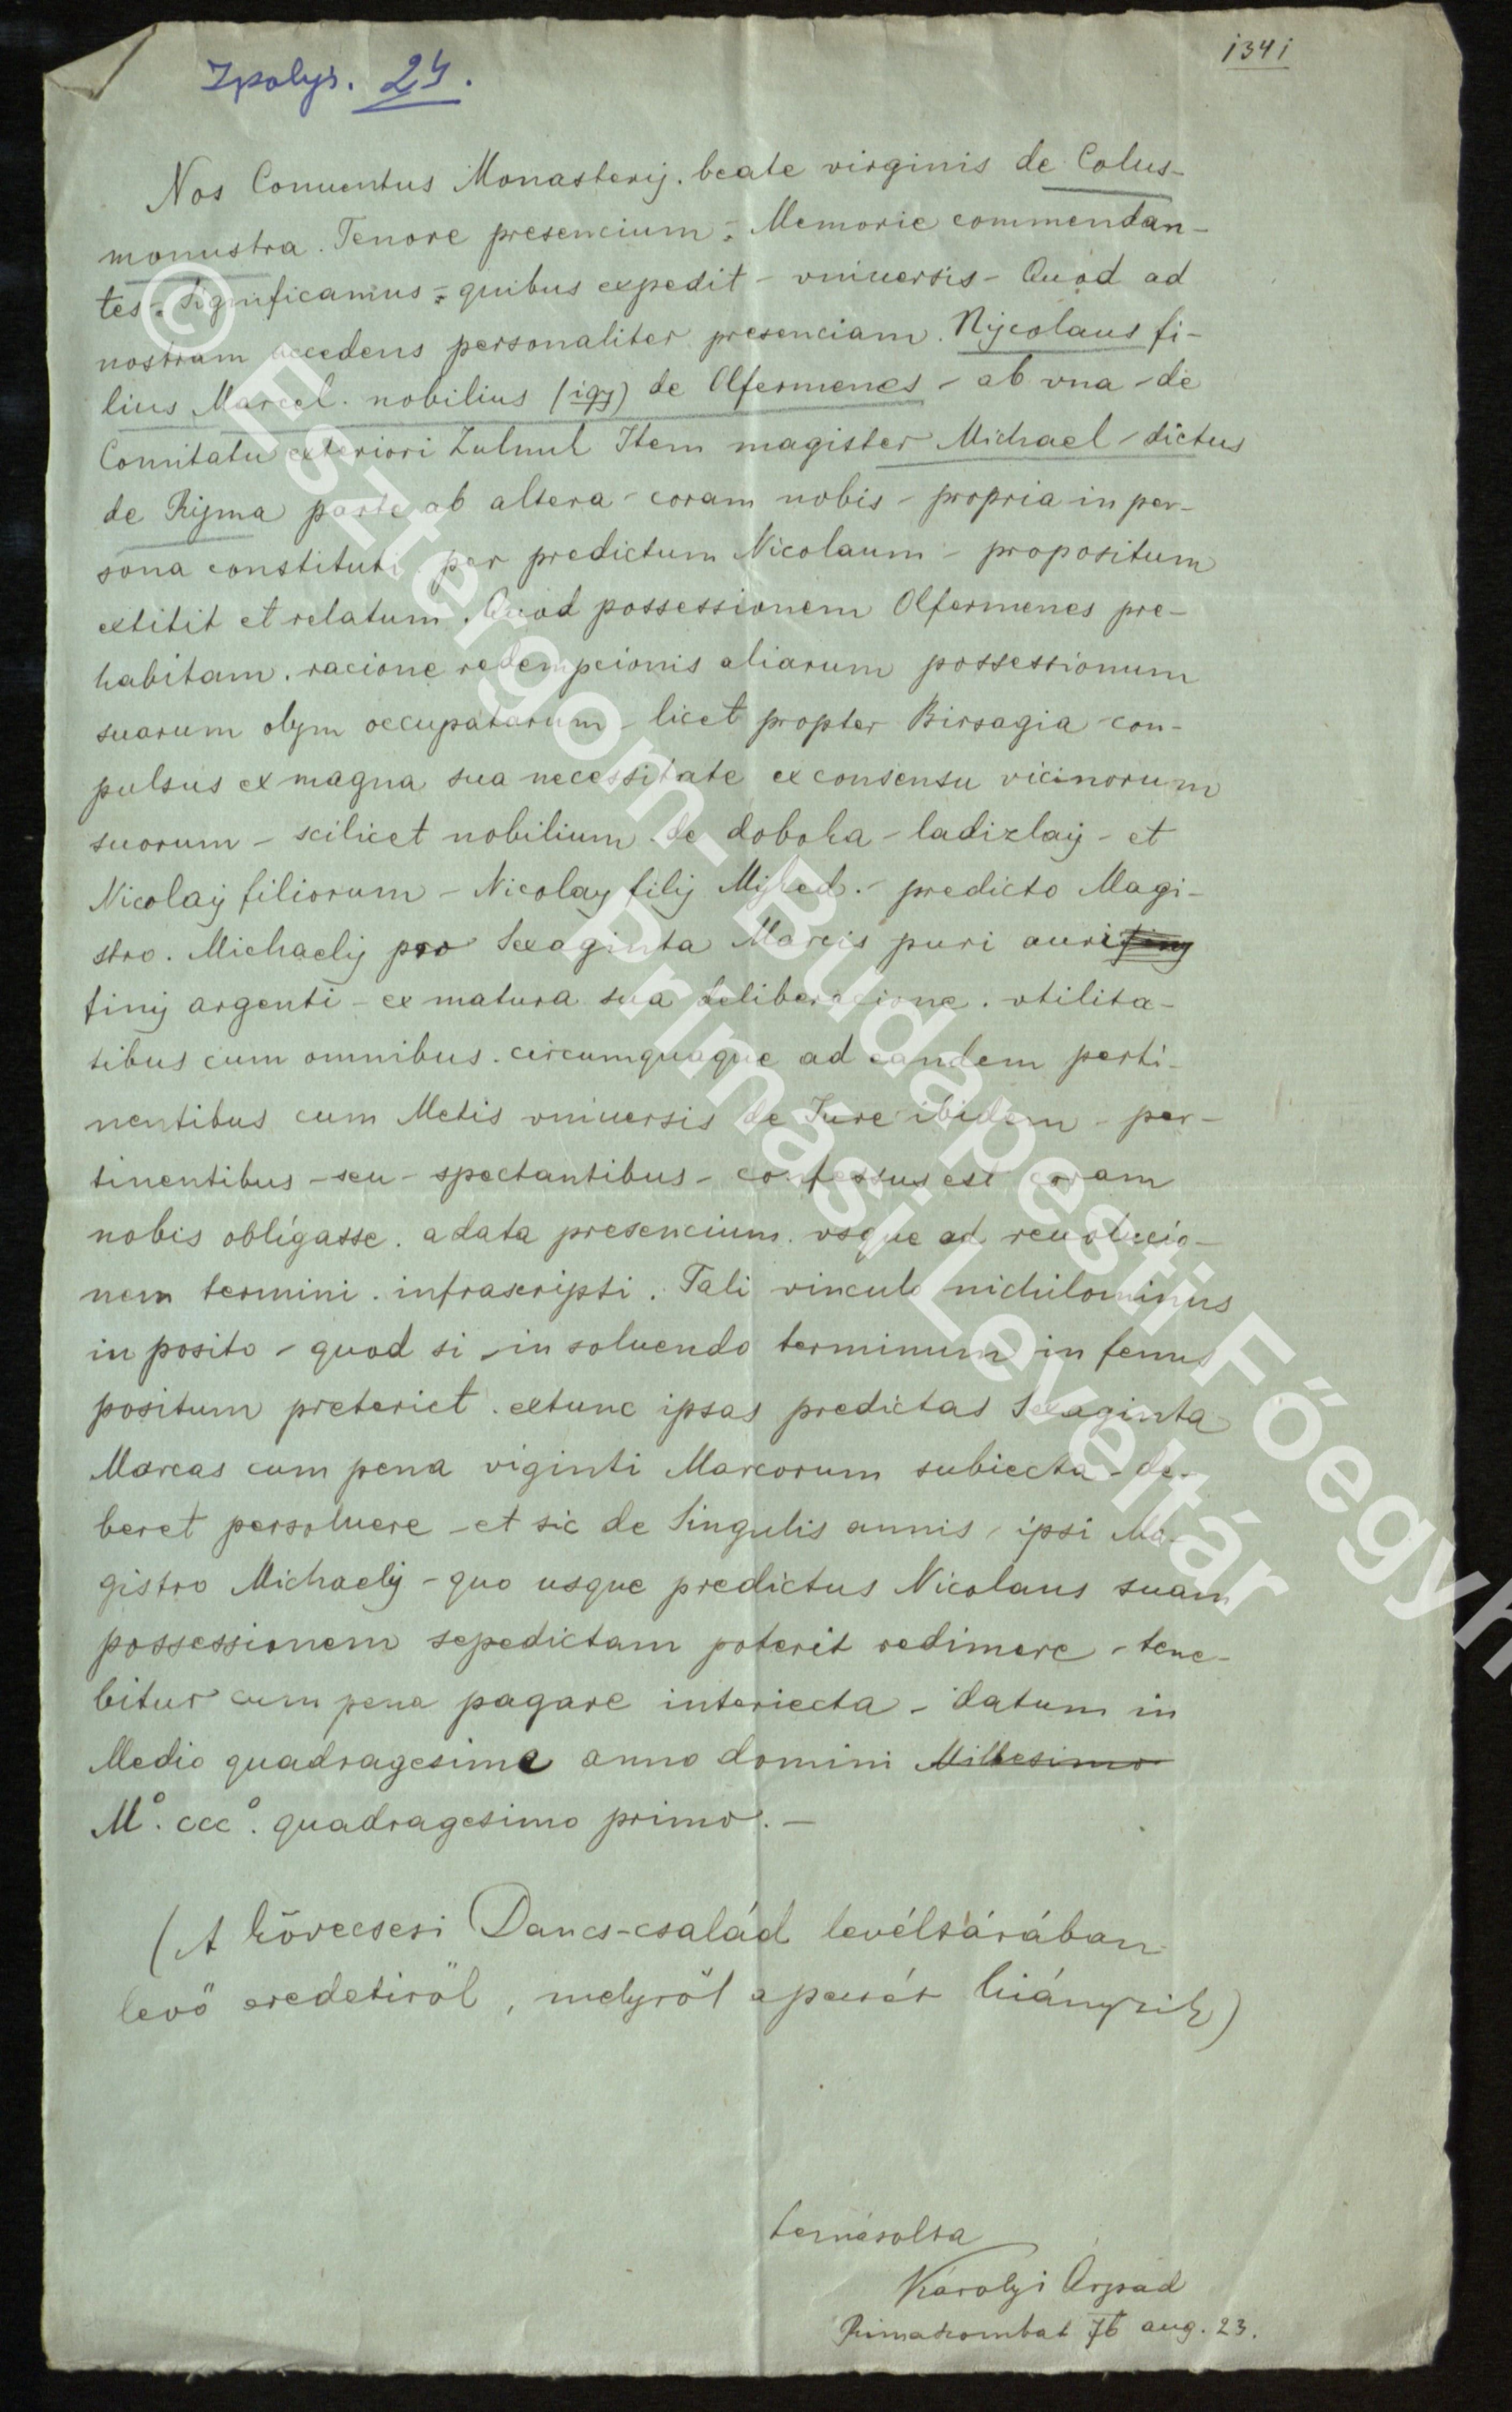 Ipolys. 24.
1341
Nos Conuentus Monasterij. beate virginis de Colus-
monustra. Tenore presencium = Memorie commendan-
tes = significamus = quibus expedit - vniuersis - Quod ad
nostram accedens personaliter presenciam. Nycolaus fi-
lius Marcel. nobilius (igy) de Olfermenes - ab vna - de
Comitatu exteriori Zulnuk Item magister Michael - dictus
de Rijma parte ab altera - coram nobis - propria in per-
sona constituti per predictum Nicolaum - propositum
extitit et relatum. Quod possessionem Olfermenes pre-
habitam. racione redempcionis aliarum possessionum
suarum olym occupatarum - licet propter Birsagia con-
pulsus ex magna sua necessitate ex consensu vicinorum
suorum - scilicet nobilium de doboka - ladizlaij - et
Nicolaij filiorum - Nicolay filij Myked. - predicto Magi-
stro. Michaelij pro Sexaginta Marcis puri auri
finij argenti - ex matura sua deliberacione. vtilita-
tibus cum omnibus. circumquaque ad eandem perti-
nentibus cum Metis vniuersis de Jure ibidem - per-
tinentibus - seu - spectantibus - confessus est coram
nobis obligasse. a data presencium. vsque ad reuolucio-
nem termini. infrascripti. Tali vinculo nichilominus
in posito - quod si - in soluendo terminum in fenus
positum preteriet. extunc ipsas predictas Sexaginta
Marcas cum pena viginti Marcorum subiecta - de-
beret persoluere - et sic de Singulis annis, ipsi Ma-
gistro Michaelij - quo usque predictus Nicolaus suam
possessionem sepedictam poterit redimere - tene-
bitur cum pena pagare interiecta - datum in
Medio quadragesime anno domini Millesimo
M°. ccc°. quadragesimo primo. -
(A kövecsesi Dancs-család levéltárában
levő eredetiről, melyről a pecsét hiányzik)
lemásolta
Károlyi Árpád
Rimaszombat 76 aug. 23.
© Esztergom-Budapesti Főegyh
Prímási Levéltár